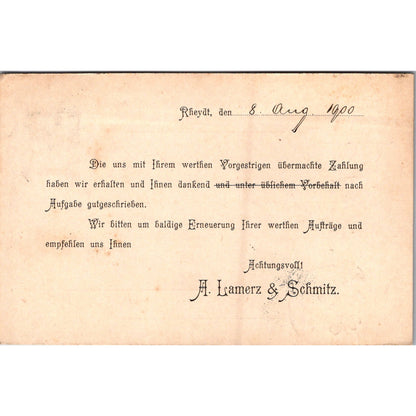 Rheydt, den 8. Aug. 1900
Die uns mit Ihrem werthen Vorgestrigen übermachte Zahlung
haben wir erhalten und Ihnen dankend und unter üblichem Vorbehalt nach
Aufgabe gutgeschrieben.
Wir bitten um baldige Erneuerung Ihrer werthen Aufträge und
empfehlen uns Ihnen
Achtungsvoll!
A. Lamerz & Schmitz.